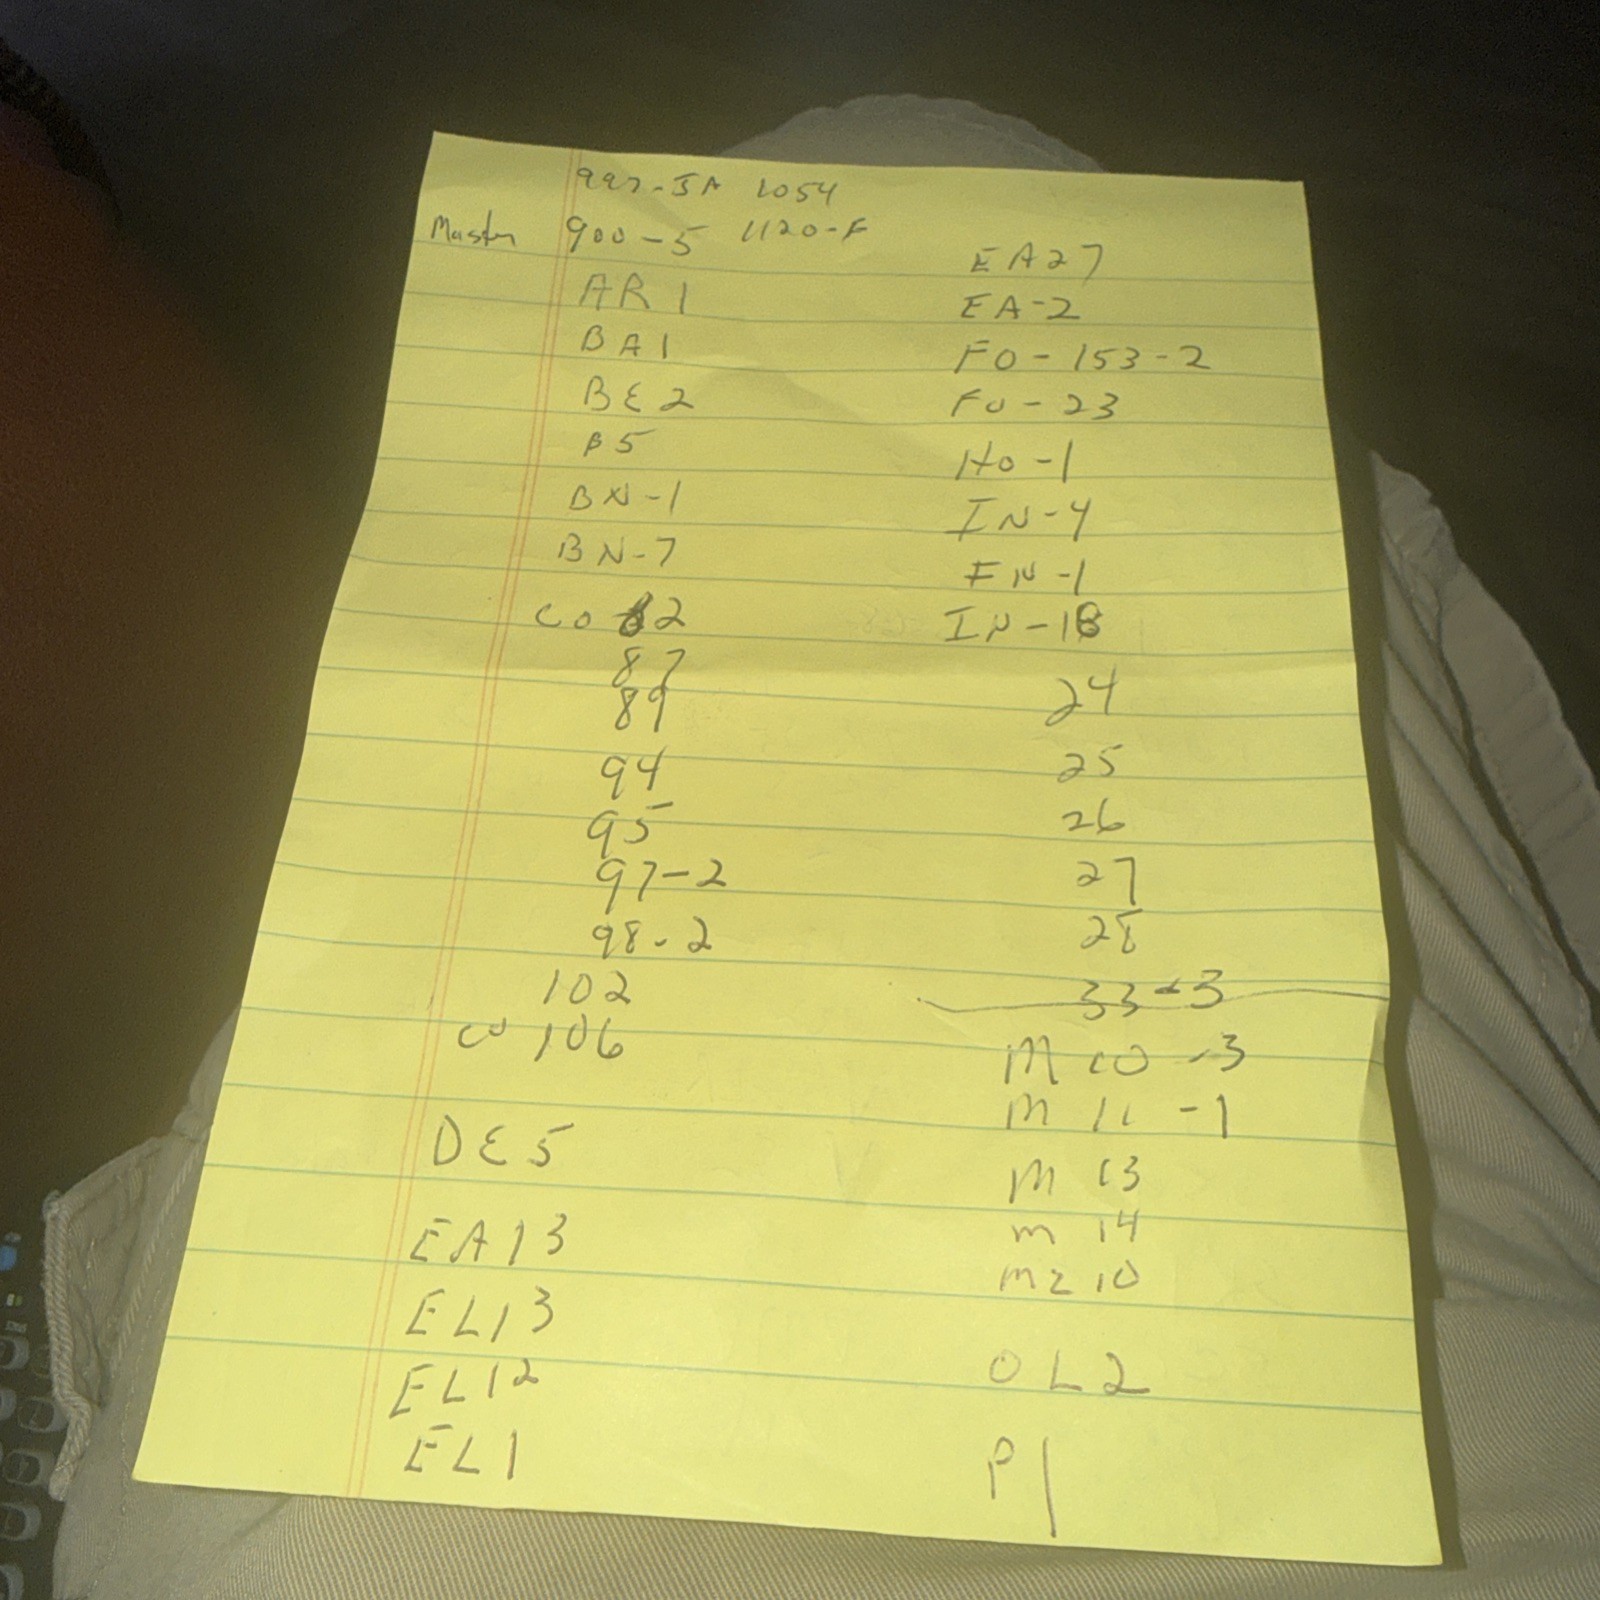 997-JA 1054
Master 900-5 1120-F
AR 1
BA1
BE2
B5
BN-1
BN-7
CO 62
87
89
94
95
97-2
98-2
102
CO 106
DE5
EA13
EL13
EL12
EL1
EA27
EA-2
FO-153-2
FO-23
HO-1
IN-4
IN-1
IN-18
24
25
26
27
28
33-3
M 10 -3
M 11 -1
M 13
M 14
MZ 10
OL2
P1